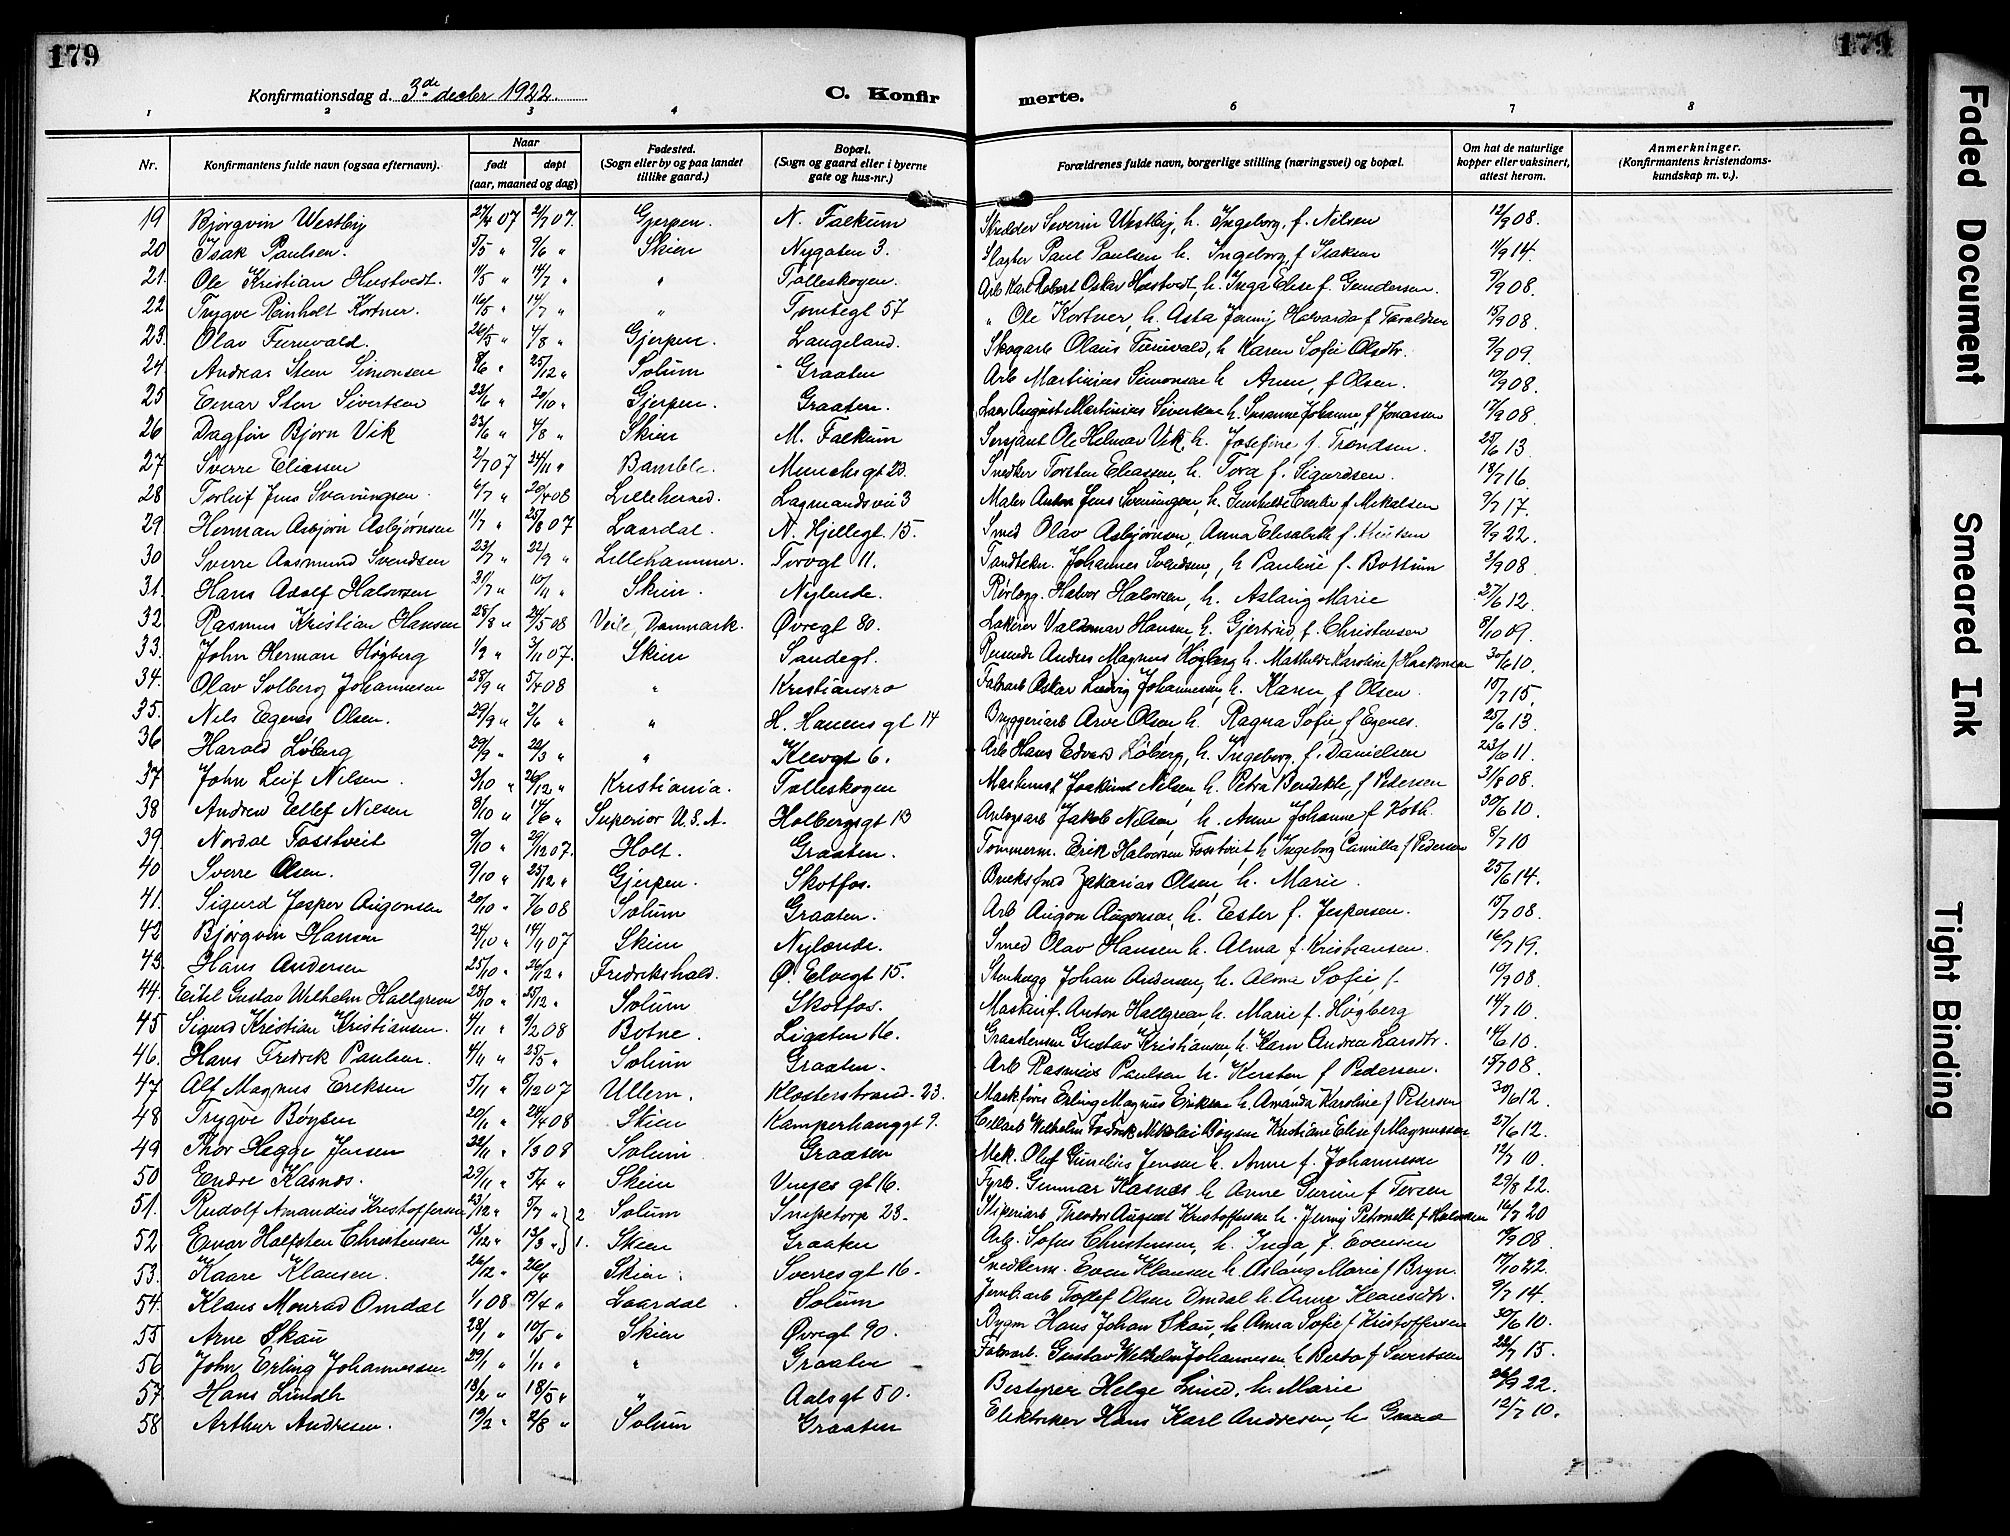 179
179
Konfirmationsdag d. 3de decbr 1922.
C. Konfir
merte.
1 2 3 4 6 7 8
Nr. Konfirmantens fulde navn (ogsaa efternavn). Naar født døpt (aar, maaned og dag) Fødested. (Sogn eller by og paa landet tillike gaard.) Bopæl. (Sogn og gaard eller i byerne gate og hus-nr.) Forældrenes fulde navn, borgerlige stilling (næringsvei) og bopæl. Om hat de naturlige kopper eller vaksinert, attest herom. Anmerkninger. (Konfirmantens kristendoms-kundskap m. v.).
19 Bjørgvin Westby 27/4 07 2/7 07. Gjerpen. N. Falkum Skredder Severin Westby, h. Ingeborg, f. Nilsen 12/9 08.
20 Isak Paulsen. 5/5 " 9/6 " Skien Nygaten 3. Slagter Paul Paulsen h. Ingeborg, f Isaksen 11/9 14.
21. Ole Kristian Hustvedt. 11/5 " 14/7 " " Falleskogen. Arb Karl Robert Oskar Hustvedt, h. Inga Elise f. Gundersen. 9/9 08.
22 Trygve Reinholt Kortner. 16/5 " 14/7 " " Tomtegt 57 " Ole Kortner, h. Asta Jenny Halvarda f Taraldsen 15/9 08.
23. Olav Furuvald. 26/5 " 4/8 " Gjerpen. Langeland. Skogarb Olaus Furuvald, h Karen Sofie Olsdtr. 9/9 09.
24. Andreas Steen Simonsen 8/6 " 25/12 " Solum Graaten Arb Martinius Simonsen h Anne, f Olsen. 10/9 08.
25 Einar Sten Sivertsen 23/6 " 20/10 " Gjerpen. Graaten. August Martinius Sivertsen h. Susanne Johanne, f Jonassen 17/9 08.
26 Dagfin Bjørn Vik 23/6 " 4/8 " Skien M. Falkum Sersjant Ole Helmar Vik h. Josefine f Trondsen. 25/6 13.
27 Sverre Eliassen 2/7 07 24/11 " Bamble. Munchsgt 23. Snedker Torsten Eliassen, h. Tora f. Sigurdsen. 18/7 16.
28 Torleif Jens Svenungsen. 6/7 " 20/4 08 Lilleherred. Lagmandsvei 3 Maler Anton Jens Svenungsen, h. Gunhilde Emilie f Mikalsen 9/7 17.
29 Herman Asbjørn Asbjørnsen 11/7 " 25/8 07 Laardal. N. Hjellegt. 15. Smed Olav Asbjørnsen, Anna Elisabeth f. Knutsen 9/9 22.
30 Sverre Aasmund Svendsen 23/7 " 22/9 " Lillehammer. Torvgt 11. Tandtekn. Johannes Svendsen, h Pauline f. Bottum 3/9 08.
31. Hans Adolf Halvorsen 31/7 " 10/11 " Skien. Nylende. Rørlegg. Halvor Halvorsen, h. Aslaug Marie 27/6 12.
32 Rasmus Kristian Hansen 28/8 " 24/5 08 Veile, Danmark. Øvregt 80. Lakerer Valdemar Hansen h. Gjertrud, f. Christensen 8/10 09.
33. John Herman Høgberg 1/9 " 3/11 07. Skien Sandegt. Anders Magnus Høgberg h. Mathilde Karoline f Haakonsen 30/6 10.
34. Olav Solberg Johannesen 28/9 " 5/4 08 " Kristiansro Fabrarb Oskar Ludvig Johannesen, h. Karen f Olsen. 15/7 15.
35. Nils Egenes Olsen. 29/9 " 2/6 " " H. Hanens gt 14 Bryggeriarb Arve Olsen h. Ragna Sofie f Egenes. 25/6 13.
36 Harald Løberg 29/9 " 22/3 " " Klevgt 6. Arb Hans Edvard Løberg, h. Ingeborg, f. Danielsen 23/6 11.
37 John Leif Nilsen. 3/10 " 26/12 " Kristiania. Falleskogen Maskinist Joakim Nilsen h. Petra Bendikte, f Pedersen 31/8 08.
38 Andrew Ellef Nilsen 8/10 " 14/6 " Superior U.S.A. Holbergsgt 13 Anlegsarb Jakob Nilsen h. Anne Johanne f Koth. 30/6 10.
39. Nordal Fosstveit 9/10 " 29/12 07. Holt. Graaten. Tømmerm. Erik Halvorsen Fosstveit, h Ingeborg Camilla f Pedersen 8/7 10
40 Sverre Olsen. 9/10 " 25/12 " Gjerpen. Skotfos. Zakarias Olsen, h. Marie. 25/6 14.
41. Sigurd Jesper Augonsen 20/10 " 7/6 08 Solum Graaten. Arb Augon Augonsen, h. Ester f. Jespersen. 15/7 08.
42 Bjørgvin Hansen 24/10 " 14/9 07 Skien Nylænde. Smed Olav Hansen h. Alma f. Kristiansen. 16/7 19.
43 Hans Andersen 25/10 " 26/12 " Fredrikshald. Ø. Elvegt 15. Stenhugg Johan Andersen, h. Alma Sofie, f. 10/9 08.
44. Eitel Gustav Wilhelm Hallgreen 28/10 " 25/12 " Solum Skotfos. Maskinf. Anton Hallgreen, h. Marie f. Høgberg 14/7 10.
45 Sigurd Kristian Kristiansen. 4/11 " 9/2 08 Botne. Ligaten 16. Gustav Kristiansen, h. Karn Andrea Larsdtr. 14/6 10.
46. Hans Fredrik Paulsen. 4/11 " 25/5 " Solum Graaten. Arb Rasmus Paulsen h. Kirsten f Pedersen. 15/7 08.
47 Alf Magnus Eriksen 5/11 " 8/12 07 Ullern. Klosterstrand. 23. Maskfører Erling Magnus Eriksen h. Amanda Karoline f Petersen 30/6 12.
48 Trygve Bøysen 20/11 " 24/4 08 Skien Kamperhauggt 9. Cellarb Wilhelm Fredrik Nikolai Bøysen Kristiane Elise f Magnussen 27/6 12.
49 Thor Hegge Jensen 22/11 " 1/3 08 Solum Graaten Mek. Oluf Gunelius Jensen h. Anne f. Johannesen 12/7 10.
50 Endre Kasnæs. 29/11 " 5/4 " Skien Vinjes gt 16. Fyrb. Gunnar Kasnæs h Anne Gurine f Torsen 29/8 22.
51. Rudolf Amandus Kristoffersen 23/12 " 5/7 " 2 Solum Snipetorp 28. Slikeriarb Theodor August Kristoffersen h. Jenny Petronelle f Halvorsen 16/7 20
52 Einar Halfsten Christensen 13/12 " 13/3 " 1. Skien Graaten Arb. Sofus Christensen, h. Inga, f. Evensen 7/9 08.
53. Kaare Klausen. 26/12 " 26/4 Skien. Sverresgt 16. Snedkerm. Even Klausen h Aslaug Marie f Bryn. 17/10 22.
54. Klaus Monrad Omdal 1/1 08 19/4 " Laardal. Solum Jernb.arb Tollef Olsen Omdal h. Anne Klausdtr. 9/7 14.
55 Arne Skau 28/1 " 10/5 " Skien Øvregt 90. Bygm Hans Johan Skau, h Anna Sofie f Kristoffersen 30/6 10.
56 John Erling Johannessen 29/1 " 1/11 " " Graaten Fabrarb. Gustav Wilhelm Johannesen h Berta f Sivertsen 22/7 15.
57 Hans Lundh 13/2 " 18/5 " " Aalsgt 50. Bestyrer Helge Lund, h. Marie 26/9 22.
58 Arthur Andresen. 19/2 " 2/8 " Solum Graaten Elektriker Hans Karl Andresen, h 12/7 10.
Faded Document
Smeared Ink
Tight Binding